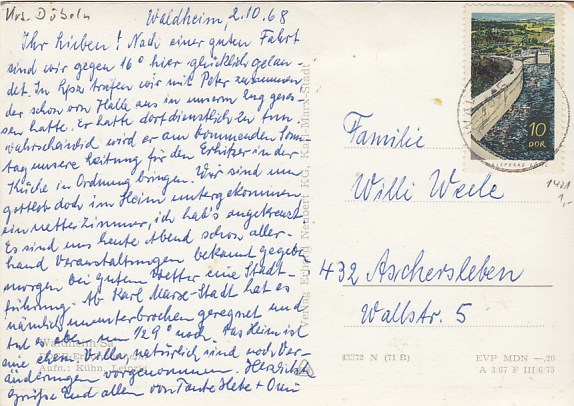 Krs. Döbeln
Waldheim, 2.10.68
Ihr Lieben! Nach einer guten Fahrt
sind wir gegen 16° hier glücklich gelan-
det. In trafen wir mit Peter zusammen
der schon von Halle aus in unserem Zug geses-
sen hatte. Er hatte dort dienstlich zu tun.
Wahrscheinlich wird er am kommenden Sonn
tag unsere Leitung für den Erhitzer in der
Küche in Ordnung bringen. Wir sind nun
gottlob doch im Heim untergekommen
ein nettes Zimmer, ich hab's angekreuzt
Es sind uns heute Abend schon aller-
hand Veranstaltungen bekannt gegeben
morgen bei gutem Wetter eine Stadt-
führung. Ab Karl Marx-Stadt hat es
nämlich ununterbrochen geregnet und
tut es eben um 1/2 9° noch. Das Heim ist
eine ehem. Villa, natürlich sind noch Ver-
änderungen vorgenommen. Herzliche
Grüße Euch allen von Tante Hete + Omi
Familie
Willi Weele
432 Aschersleben
Wallstr. 5
10
DDR
1401
1,-
Waldheim/Sa.
Aufn.: Kühn, Leipzig
Verlag Erhard Neubert KG, Karl-Marx-Stadt
43372 N (71 B)
EVP MDN —.20
A 3/67 F III/6/73